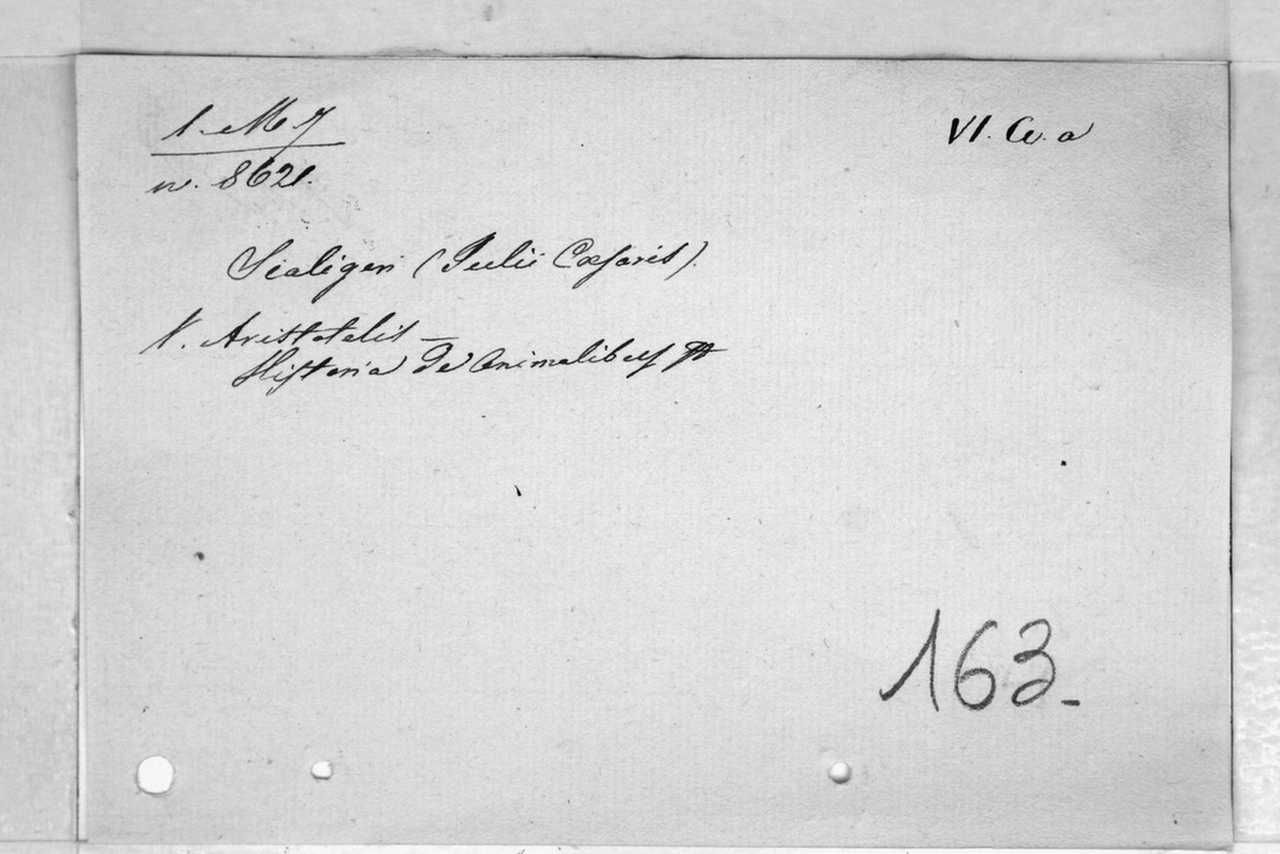 1. M. 7
n. 8621.
VI. Cv. a
Scaligeri (Julii Cæsaris).
V. Aristotelis —
Historia de Animalibus
163-